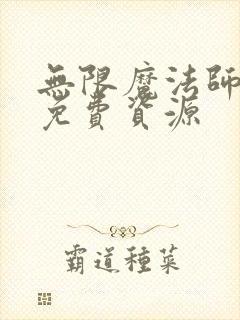 無限魔法師
免費資源
霸道種菜